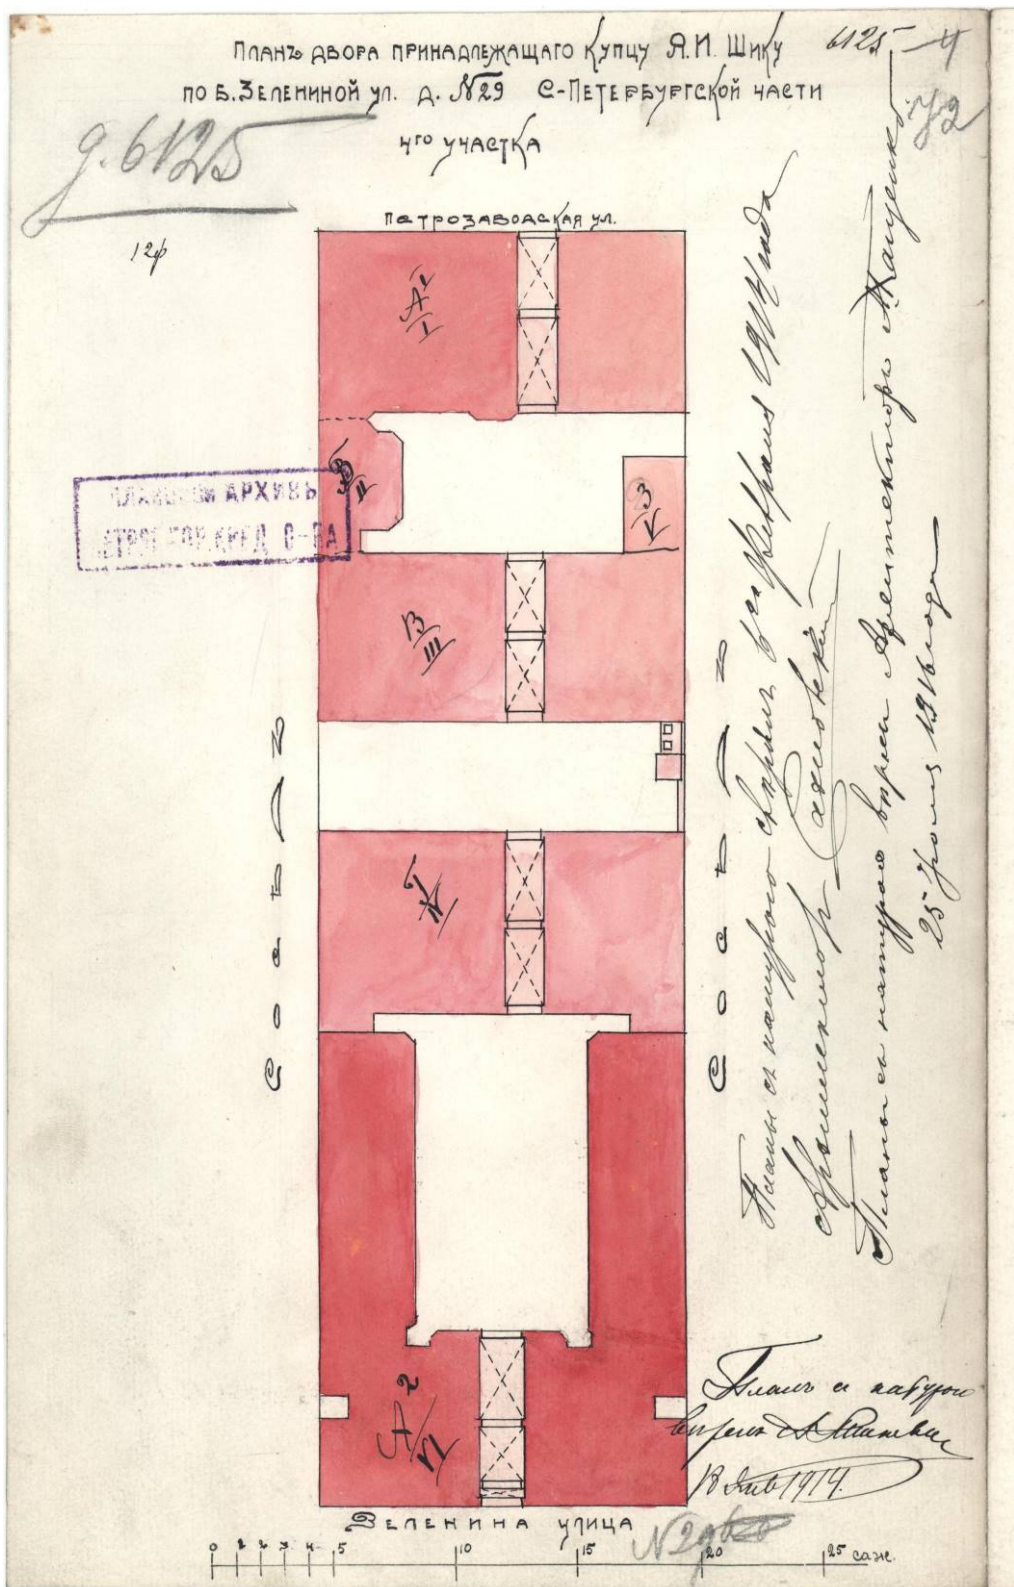 6125 – 4
Планъ двора принадлежащаго купцу Я.И. Шику
по Б. Зелениной ул. д. №29 С-Петербургской части
4го участка
д. 6125
12ф
72
Петрозаводская ул.
А1
I
В
II
З
V
В
III
Г
IV
А2
VI
АРХИВЪ
КРЕД. О-ВА
Сосѣдъ
Сосѣдъ
Планъ съ натурою свѣрилъ 6го февраля 1914 года
Архитекторъ
Планъ съ натурою вѣренъ Архитекторъ
25 1916 года
Планъ съ натурою
вѣренъ
13 янв 1914.
Зеленина улица
№29
0 1 2 3 4 5 10 15 20 25 саж.